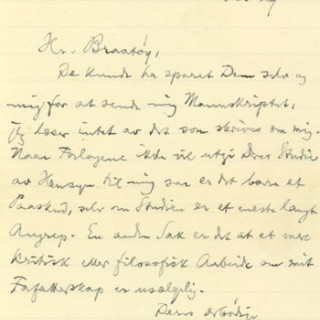 Hr. Braatøy,
De kunde ha sparet Dem selv og
mig for at sende mig Manuskriptet,
jeg læser intet av det som skrives om mig.
Naar Forlagene ikke vil utgi Deres Studie
av Hensyn til mig saa er det bare et
Paaskud, selv om Studien er et eneste langt
Angrep. En anden Sak er det at et mere
kritisk eller filosofisk Arbeide om mit
Forfatterskap er usælgelig.
Deres ærbødige